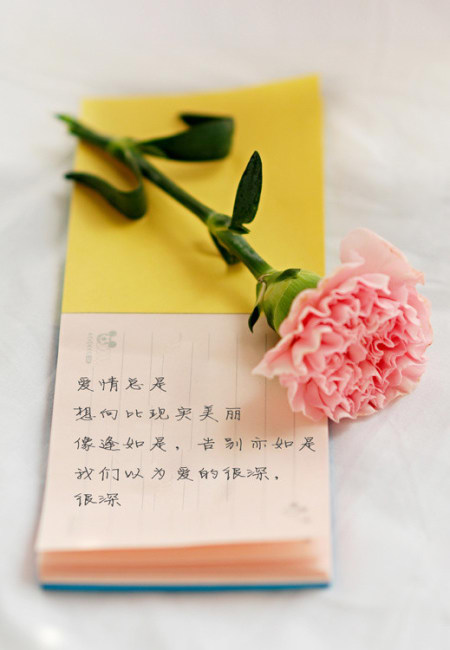 爱情总是
想向比现实美丽
像逢如是，告别亦如是
我们以为爱的很深，
很深